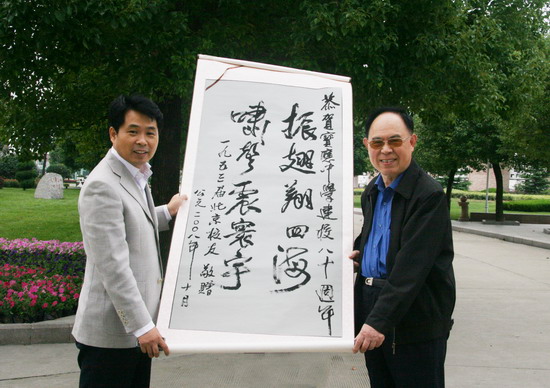 恭賀寶應中學建校八十週年
振翅翔四海
嘯聲震寰宇
一九五三届北京校友 敬贈
公元二〇〇八年十月